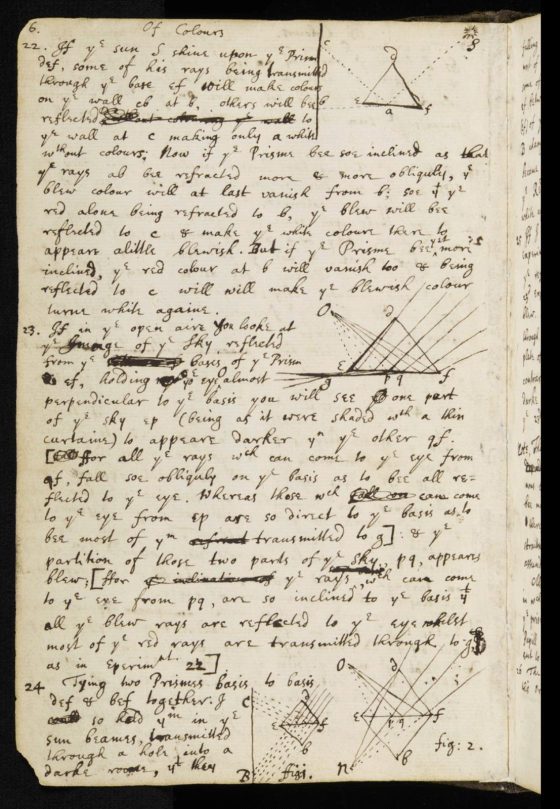 6. Of Colours
22. If yᵉ sun S shine upon yᵉ Prism
def, some of his rays being transmitted
through yᵉ base ef will make colours
on yᵉ wall cb at b, others will bee
reflected to
yᵉ wall at c making only a white
wᵗʰout colours. Now if yᵉ Prisme bee soe inclined as that
yᵉ rays ab bee refracted more & more obliquly, yᵉ
blew colour will at last vanish from b; soe yᵗ yᵉ
red alone being refracted to b, yᵉ blew will bee
reflected to c & make yᵉ white coloure there to
appeare alittle blewish. But if yᵉ Prisme bee yet more
inclined, yᵉ red colour at b will vanish too & being
reflected to c will will make yᵉ blewish colour
turne white againe.
23. If in yᵉ open aire you looke at
yᵉ Image of yᵉ Sky reflected
from yᵉ basis of yᵉ Prism
ef, holding yoʳ eye almost
perpendicular to yᵉ basis you will see one part
of yᵉ sky ep (being as it were shaded wᵗʰ a thin
curtaine) to appeare darker yⁿ yᵉ other qf.
[ffor all yᵉ rays wᶜʰ can come to yᵉ eye from
qf, fall soe obliquly on yᵉ basis as to bee all re=
flected to yᵉ eye. Whereas those wᶜʰ can come
to yᵉ eye from ep are so direct to yᵉ basis as to
bee most of yᵐ transmitted to g]: & yᵉ
partition of those two parts of yᵉ sky, pq, appeares
blew; [ffor yᵉ rays wᶜʰ can come
to yᵉ eye from pq, are so inclined to yᵉ basis yᵗ
all yᵉ blew rays are reflected to yᵉ eye whilst
most of yᵉ red rays are transmitted through to g
as in Experimᵗ. 22].
24 Tying two Prismes basis to basis
def & bef together. I
so hold yᵐ in yᵉ
sun beames, transmitted
through a hole into a
darke roome, yᵗ they
d
a
b
c
f
O
d
E
p q
f
g
c
d
f
b
B
fig 1.
O
d
E
p q
f
b
N
fig: 2.